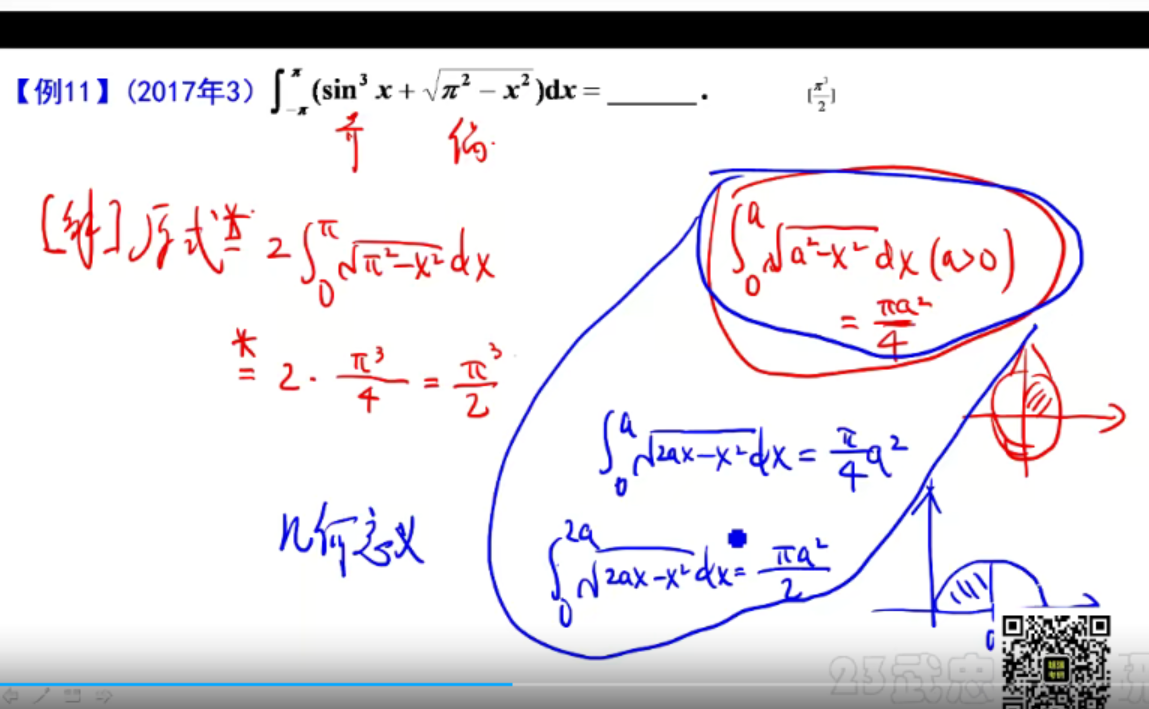 【例11】(2017年3) ∫_{-π}^{π} (sin³ x + √(π² − x²))dx = ______. [π³/2]
奇 偶
[解] 原式 = 2∫_0^π √(π²−x²) dx
= 2 · π³/4 = π³/2
∫_0^a √(a²−x²) dx (a>0)
= πa²/4
∫_0^a √(2ax−x²) dx = π/4 a²
几何意义
∫_0^{2a} √(2ax−x²) dx = πa²/2
23武忠
研